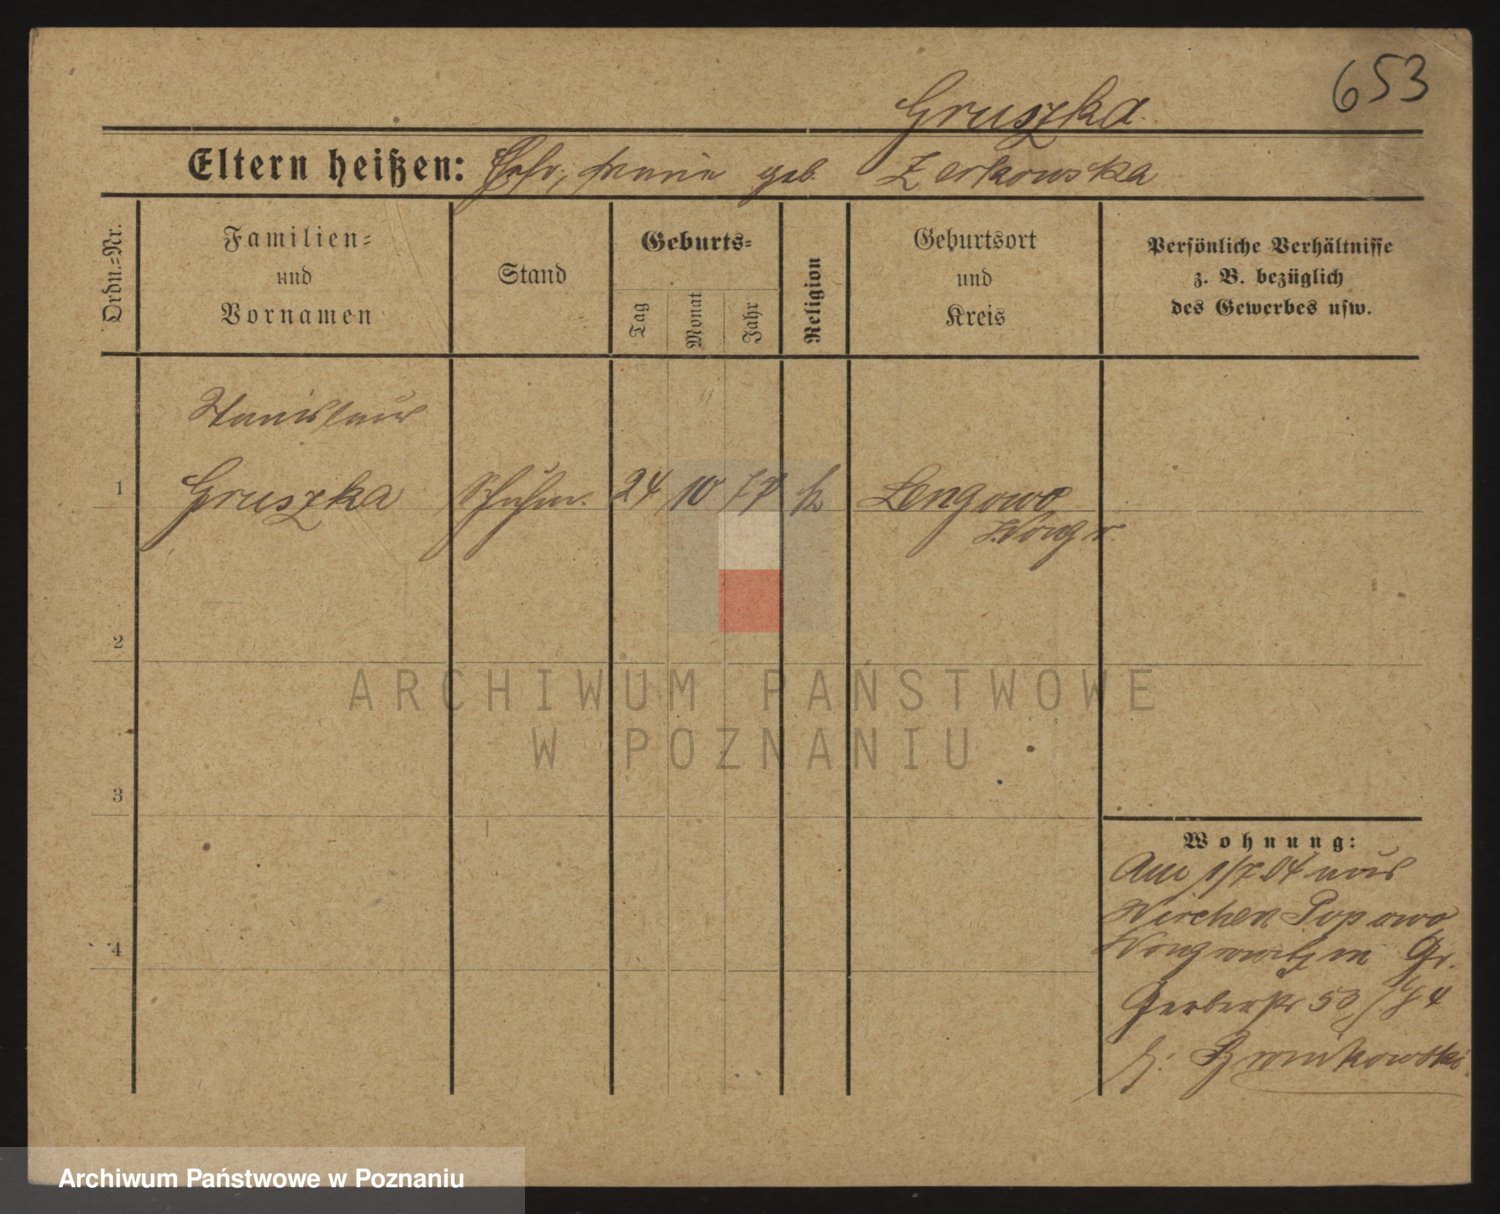 653
Gruszka
Eltern heißen: geb. Zerkowska
Ordn.=Nr.
Familien=
und
Vornamen
Stand
Geburts=
Tag
Monat
Jahr
Religion
Geburtsort
und
Kreis
Persönliche Verhältnisse
z. B. bezüglich
des Gewerbes usw.
Stanislaus
1 Gruszka Schuhm. 24 10 77 k Lengowo
Wongr.
2
3
4
Wohnung:
Am 1/7 04 aus
Kirchen Popowo
Wongrowitz
Gerberstr 50
Bronikowski
ARCHIWUM PAŃSTWOWE
W POZNANIU
Archiwum Państwowe w Poznaniu